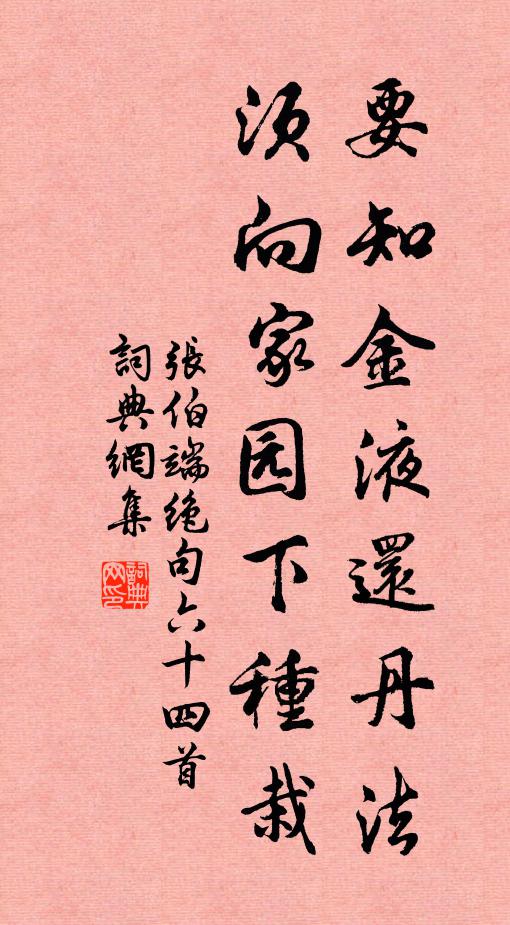 要知金液還丹法
须向家园下種栽
張伯端絶句六十四首
詞典網集
詞典
网印